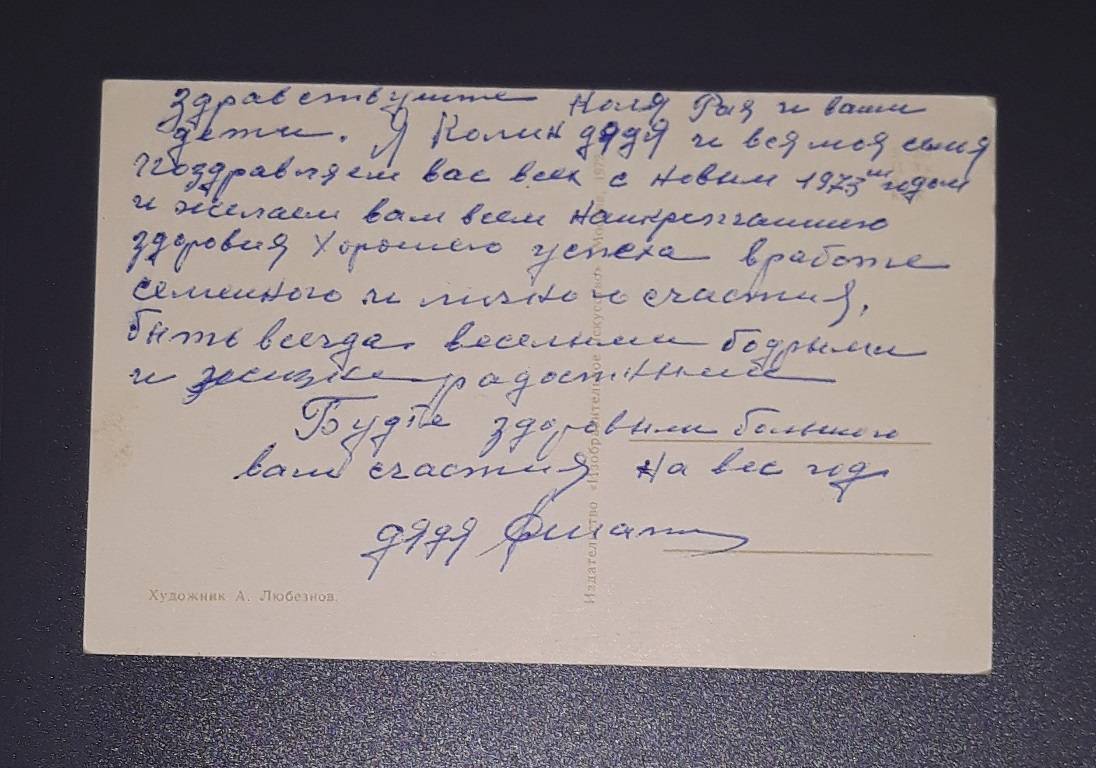 здравствуйте Коля Рая и ваши
дети. Я Колин дядя и вся моя семия
Поздравляем вас всех с новым 1973им годом
и желаем вам всем наикрепчаишего
здоровия Хорошего успеха вработе
семеиного и личного счастия,
быть всегда веселыми бодрыми
и жизне радостными
Будте здоровыми большого
вам счастия на вес год
дядя
Художник А. Любезнов.
Издательство «Изобразительное искусство»